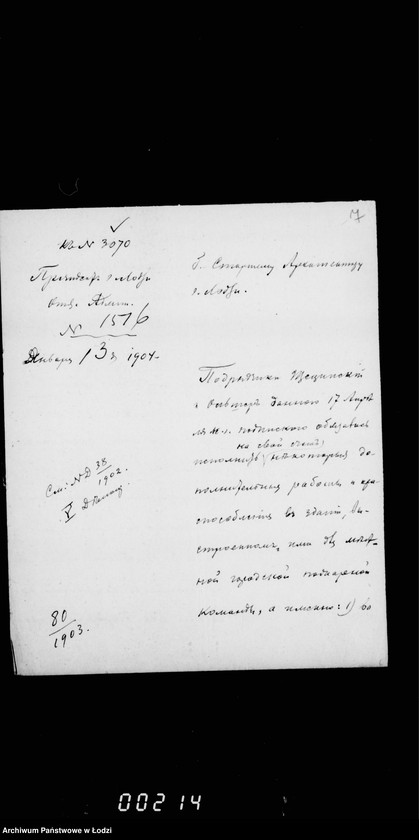 17
къ N 3070
Президентъ г. Лодзи
Отд. Админ.
N 1576
Января 13 д. 1904.
Г. Старшему Архитектору
г. Лодзи.
Подрядчики
и данною 17 Апрѣ
ля м. г. подпискою обязался
на свой счетъ
исполнить нѣкоторыя до
полнительныя работы и при
способленія въ зданіи, вы
строенномъ ими для мѣст-
ной городской пожарной
команды, а именно: 1) во
См: N Д 38
1902.
V
80
1903.
00214
Archiwum Państwowe w Łodzi